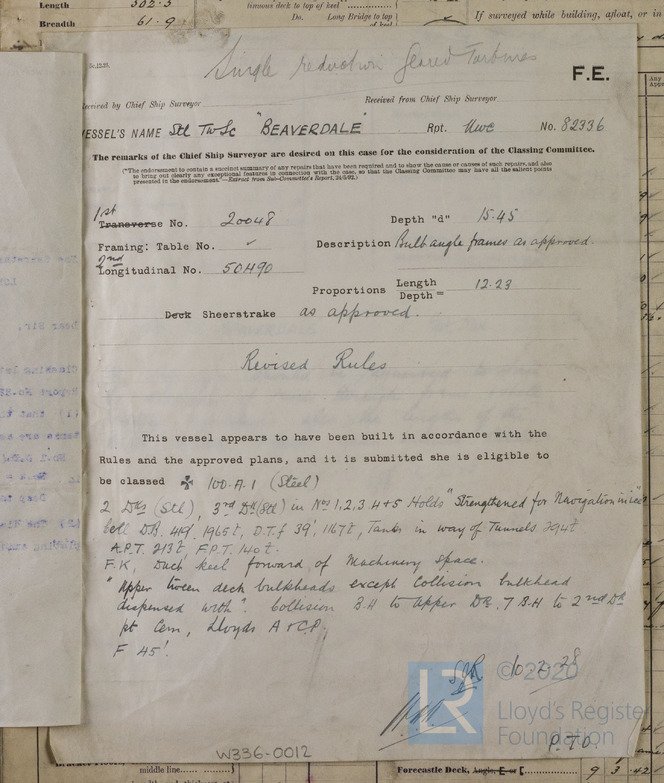 Length 502.3
Breadth 61.9
tinuous deck to top of keel
Do. Long Bridge to top of keel
If surveyed while building, afloat, or in
Single reduction Geared Turbines
F.E.
Received by Chief Ship Surveyor
Received from Chief Ship Surveyor
VESSEL'S NAME Stl TwSc "BEAVERDALE" Rpt. Nwc No. 82336
The remarks of the Chief Ship Surveyor are desired on this case for the consideration of the Classing Committee.
("The endorsement to contain a succinct summary of any repairs that have been required and to show the cause or causes of such repairs, and also
so bring out clearly any exceptional features in connection with the case, so that the Classing Committee may have all the salient points
presented in the endorsement."—Extract from Sub-Committee's Report, 24/5/92.)
1st
Transverse No. 20048 Depth "d" 15.45
Framing: Table No. Description Bulb angle frames as approved.
2nd
Longitudinal No. 50490
Proportions Length
Depth = 12.23
Deck Sheerstrake as approved.
Revised Rules
This vessel appears to have been built in accordance with the
Rules and the approved plans, and it is submitted she is eligible to
be classed ✠ 100.A.1 (Steel)
2 Dks (Stl), 3rd Dk (Stl) in Nos 1,2,3,4+5 Holds "Strengthened for Navigation in ice"
Cell D.B. 419' 1965t, D.T.f 39', 1167t, Tanks in way of Tunnels 294t
A.P.T. 213t, F.P.T. 140t.
F.K, Duct keel forward of Machinery space.
"Upper tween deck bulkheads except Collision bulkhead
dispensed with". Collision B.H to Upper Dk. 7 B.H to 2nd Dk
pt Cem, Lloyds A & C.P,
F 45'.
© 2020
Lloyd's Register
Foundation
P.T.O.
W336-0012
middle line
Forecastle Deck, Angle, E or [ 9 3 .42